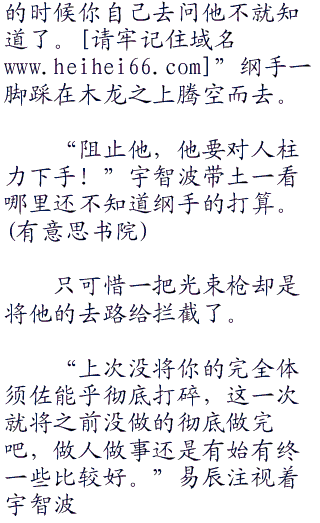 的时候你自己去问他不就知
道了。[请牢记住域名
www.heihei66.com]”纲手一
脚踩在木龙之上腾空而去。
“阻止他，他要对人柱
力下手！”宇智波带土一看
哪里还不知道纲手的打算。
(有意思书院)
只可惜一把光束枪却是
将他的去路给拦截了。
“上次没将你的完全体
须佐能乎彻底打碎，这一次
就将之前没做的彻底做完
吧，做人做事还是有始有终
一些比较好。”易辰注视着
宇智波